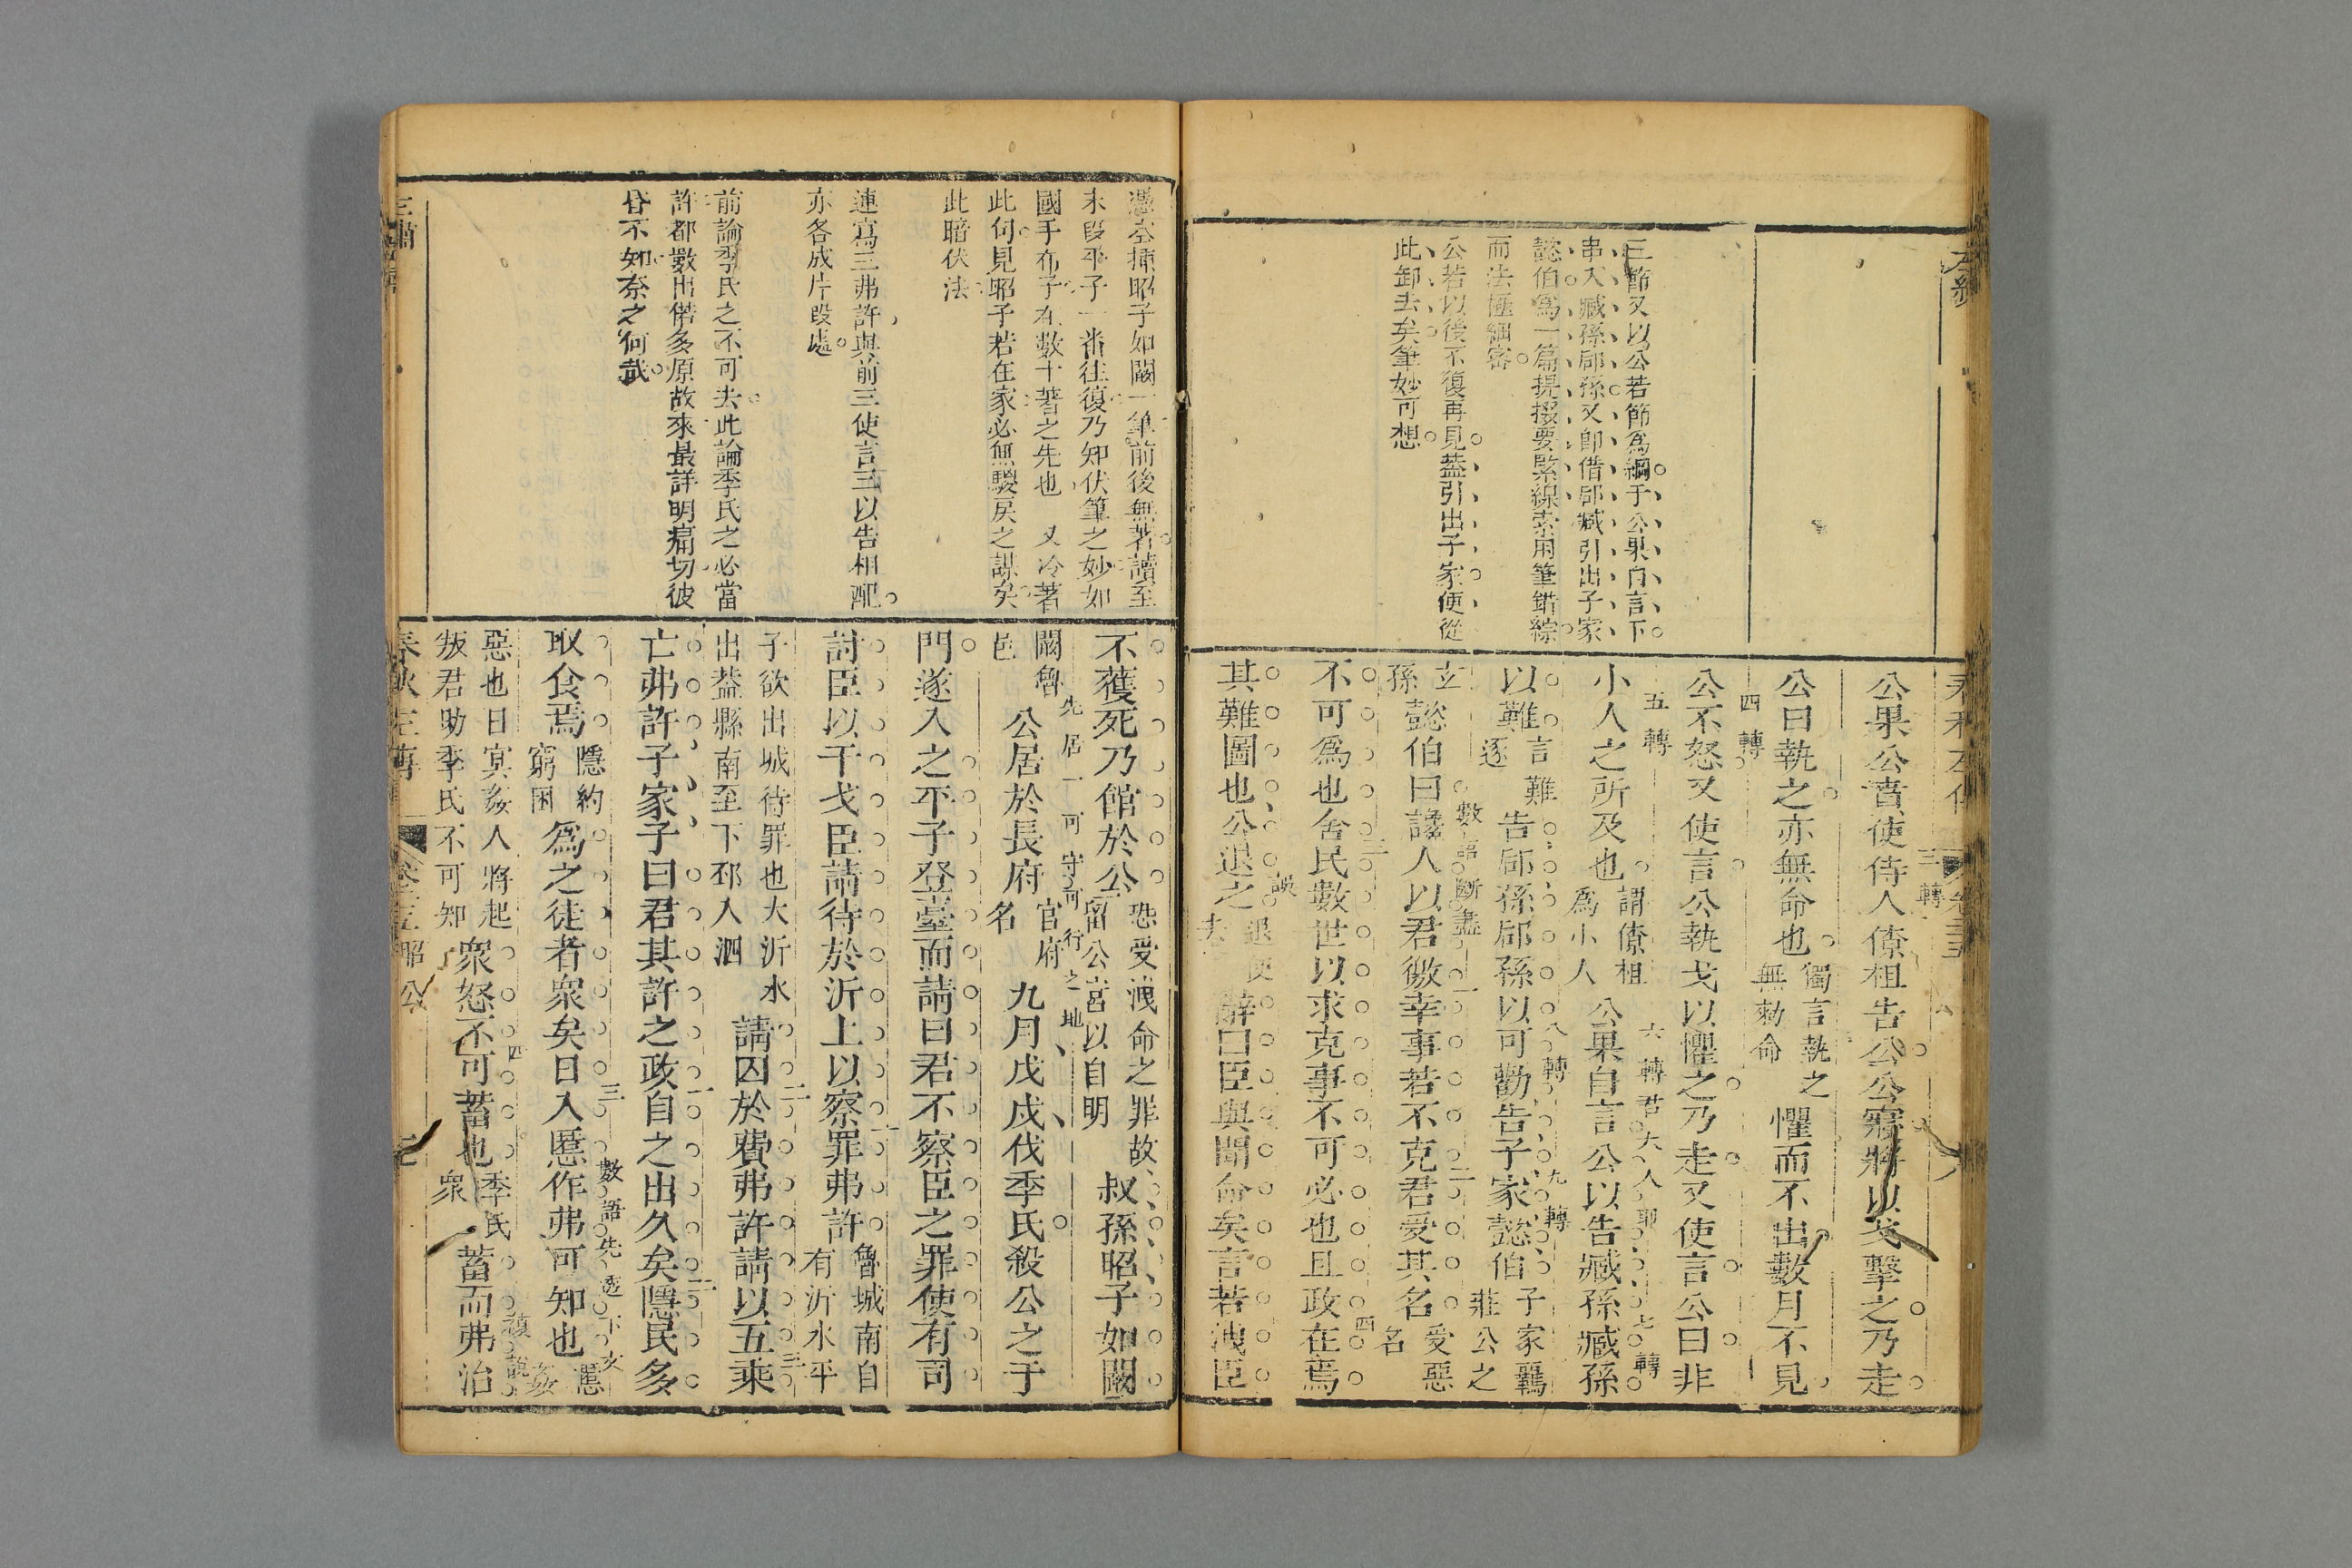 三節又以公若節為綱于公果自言下
串入臧孫郈孫又即借郈臧引出子家
懿伯為一篇提掇要緊線索用筆錯綜
而法極綱密
公若以後不復再見蓋引出子家便從
此卸去矣筆妙可想
三轉
公果公賁使侍人僚柤告公公寢將以戈擊之乃走
公曰執之亦無命也
獨言執之
無勑命
懼而不出數月不見
四轉
公不怒又使言公執戈以懼之乃走又使言公曰非
五轉
小人之所及也
謂僚柤
為小人
公果自言公以告臧孫臧孫
六轉
七轉
以難
言難
逐
告郈孫郈孫以可勸告子家懿伯
八轉
九轉
子家羈
莊公之
玄
孫
懿伯曰讒人以君徼幸事若不克君受其名
受惡
名
數語斷盡
一
二
不可為也舍民數世以求克事不可必也且政在焉
三
四
其難圖也公退之
退使
去
辭曰臣與聞命矣言若洩臣
憑空插昭子如闞一筆前後無著讀至
末段平子一番往復乃知伏筆之妙如
國手布子在數十著之先也 又冷著
此句見昭子若在家必無騣戾之謀矣
此暗伏法
連寫三弗許與前三使言三以告相配
亦各成片段處
前論季氏之不可去此論季氏之必當
許都數出偌多原故來最詳明痛切彼
昏不知奈之何哉
不獲死乃館於公
恐受洩命之罪故
留公宮以自明
叔孫昭子如闞
闞魯
邑
公居於長府
官府
名
九月戊戌伐季氏殺公之于
先居一可守可行之地
門遂入之平子登臺而請曰君不察臣之罪使有司
討臣以干戈臣請待於沂上以察罪弗許
魯城南自
有沂水平
一
子欲出城待罪也大沂水
出蓋縣南至下邳入泗
請囚於費弗許請以五乘
二
三
亡弗許子家子曰君其許之政自之出久矣隱民多
一
二
取食焉
隱約
窮困
為之徒者眾矣日入慝作弗可知也
慝
姦
三
惡也日冥姦人將起
叛君助季氏不可知
眾怒不可蓄也
季氏
眾
蓄而弗治
四
春秋左傳
昭公